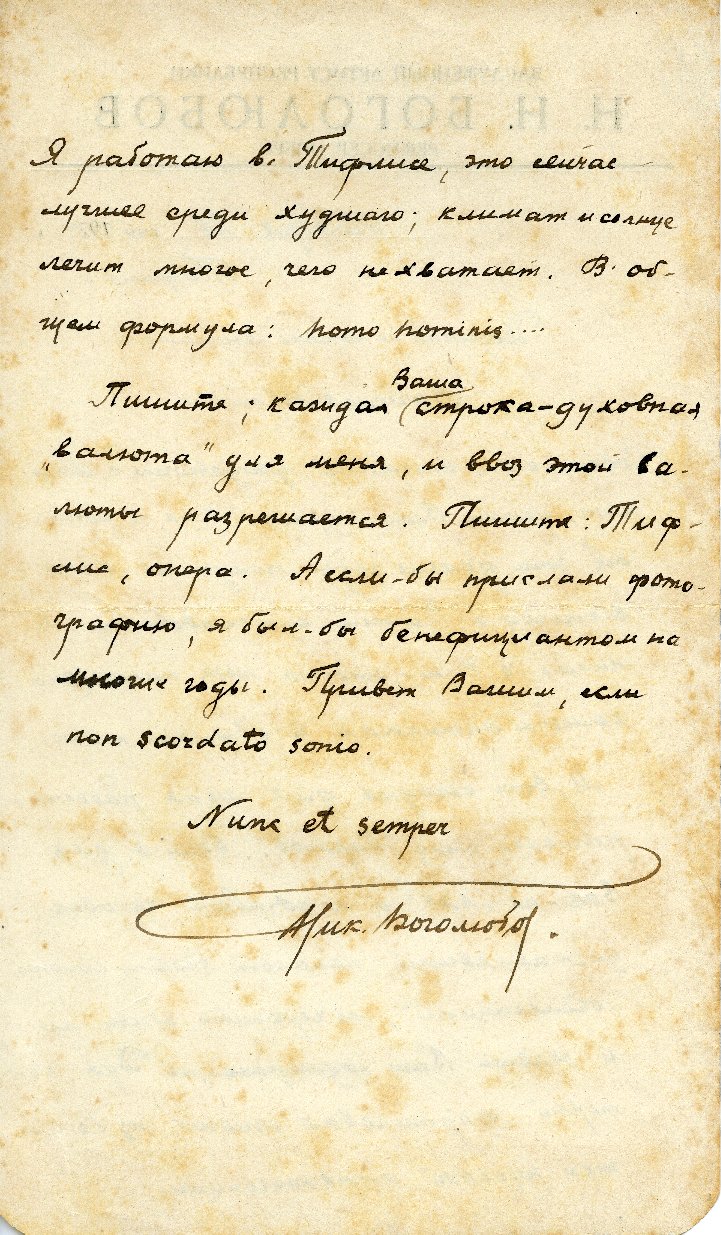 Я работаю в. Тифлисе, это сейчас
лучшее среди худшего; климат и солнце
лечит многое, чего не хватает. В об-
щем формула: homo hominis....
Ваша
Пишите; каждая строка-духовная
„валюта" для меня, и ввоз этой ва-
люты разрешается. Пишите: Тиф-
лис, опера. А если-бы прислали фото-
графию, я был-бы бенефициантом на
многие годы. Привет Вашим, если
non scordato sonio.
Nunc et semper
Ник. Боголюбов.
Н. Н. БОГОЛЮБОВ